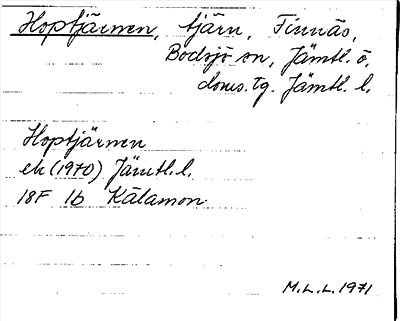 Hoptjärnen, tjärn, Finnäs,
Bodsjö sn, Jämtl. ö.
doms.tg. Jämtl. l.
Hoptjärnen
ek (1970) Jämtl. l.
18F 1b Kälamon
M.L.L. 1971